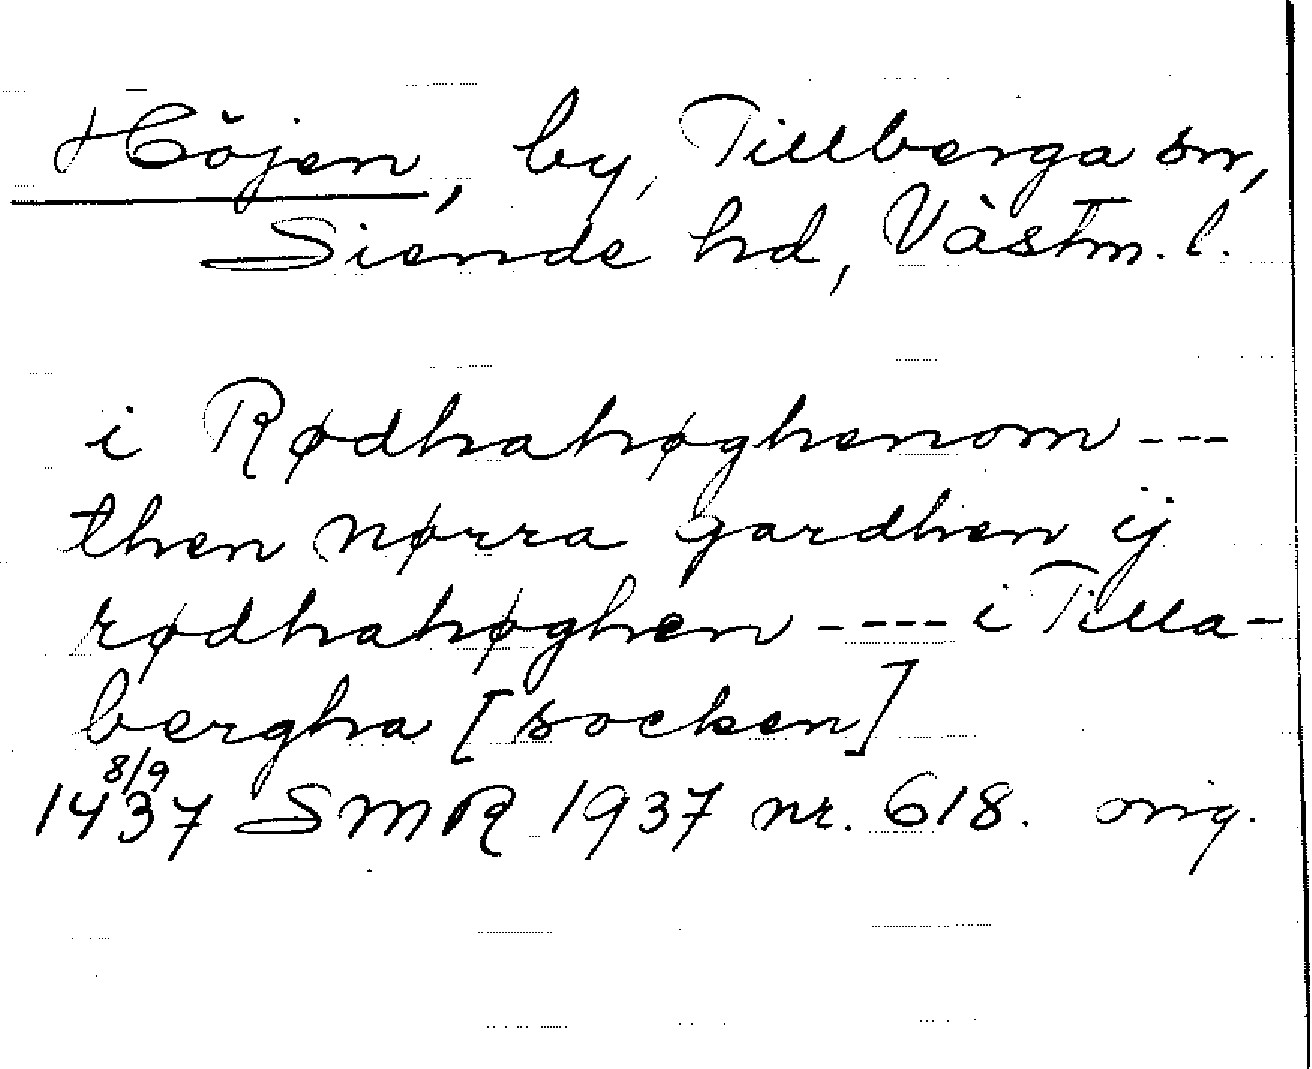 Höjen, by, Tillberga sn,
Siende hd, Västm. l.
i Rødhahøghenom ---
then nørra gardhen ij
rødhahøghen ---- i Tilla-
bergha [socken]
8/9
1437 SMR 1937 nr. 618. orig.